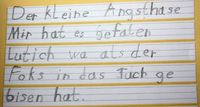 Der kleine Angsthase
Mir hat es gefalen
lutich wa als der
Foks in das Tuch ge
bisen hat.